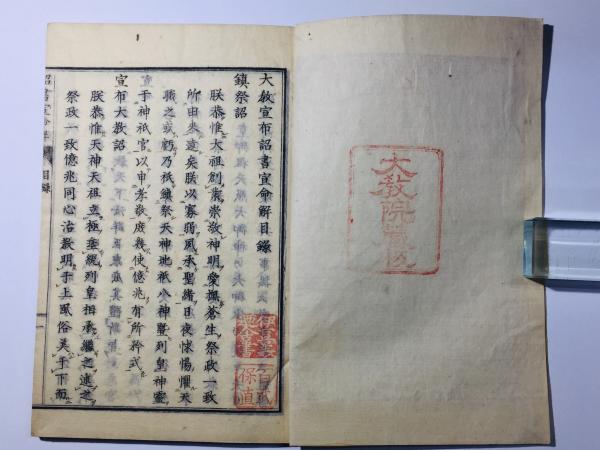 大教院蔵版
大教宣布詔書宣命解目錄
鎮祭詔
朕恭惟大祖創業崇敬神明愛撫蒼生祭政一致
所由来遠矣朕以寡弱夙承聖緒日夜怵惕懼天
職之或虧乃祇鎮祭天神地祇八神曁列皇神靈
于神祇官以申孝敬庶幾使億兆有所矜式
宣布大教詔
朕恭惟天神天祖立極垂統列皇相承繼之述之
祭政一致億兆同心治教明于上風俗美于下而
詔書宣命解
目錄
保直